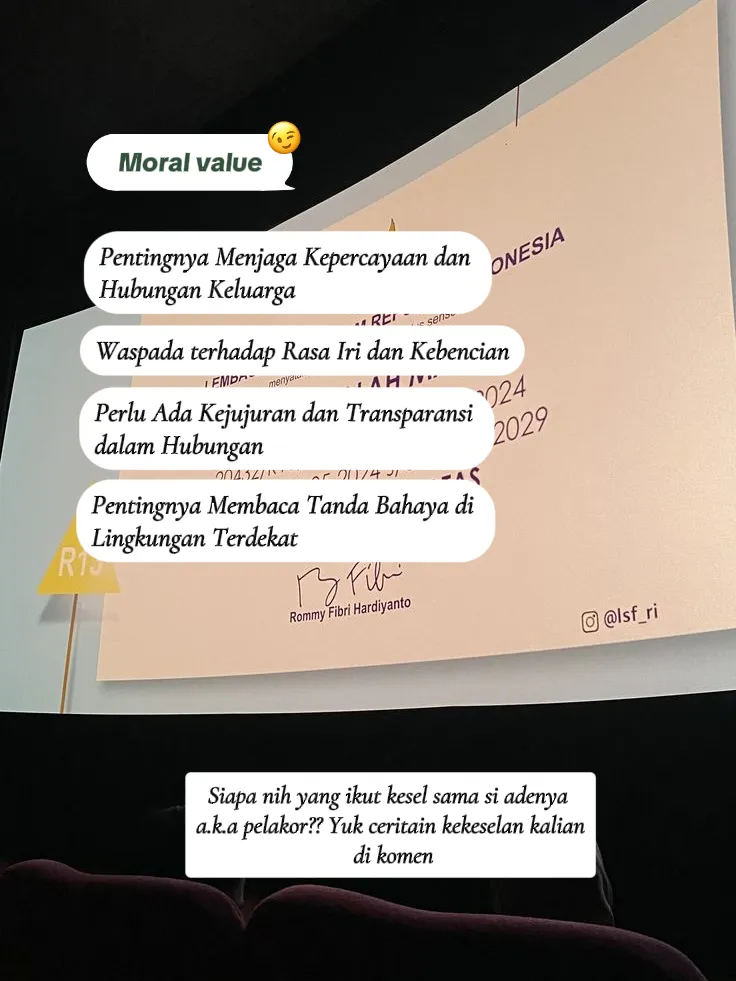 Moral value
Pentingnya Menjaga Kepercayaan dan
Hubungan Keluarga
ONESIA
Waspada terhadap Rasa Iri dan Kebencian
LEMBA
Perlu Ada Kejujuran dan Transparansi
dalam Hubungan
2024
2029
Pentingnya Membaca Tanda Bahaya di
Lingkungan Terdekat
Rommy Fibri Hardiyanto
@lsf_ri
Siapa nih yang ikut kesel sama si adenya
a.k.a pelakor?? Yuk ceritain kekeselan kalian
di komen